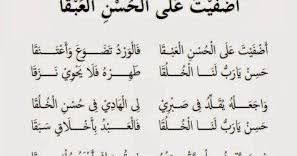 أَضْفَيْتَ عَلَى الْحُسْنِ الْعَبَقَا
أَضْفَيْتَ عَلَى الْحُسْنِ الْعَبَقَا فَالْوَرْدُ تَضَوَّعَ وَأَعْتَنَقَا
حَسِّنْ يَارَبُّ لَنَا الْخُلُقَا طَهِّرْهُ فَلَا يَحْوِي نَزَقَا
وَاجْعَلْهُ يُقَلِّدُ فِي صَبْرِي لِي الْهَادِي فِي حُسْنِ الْخُلُقَا
حَسِّنْ يَارَبُّ لَنَا الْخُلُقَا فَالْعَبْدُ بِأَخْلَاقٍ سَبَقَا